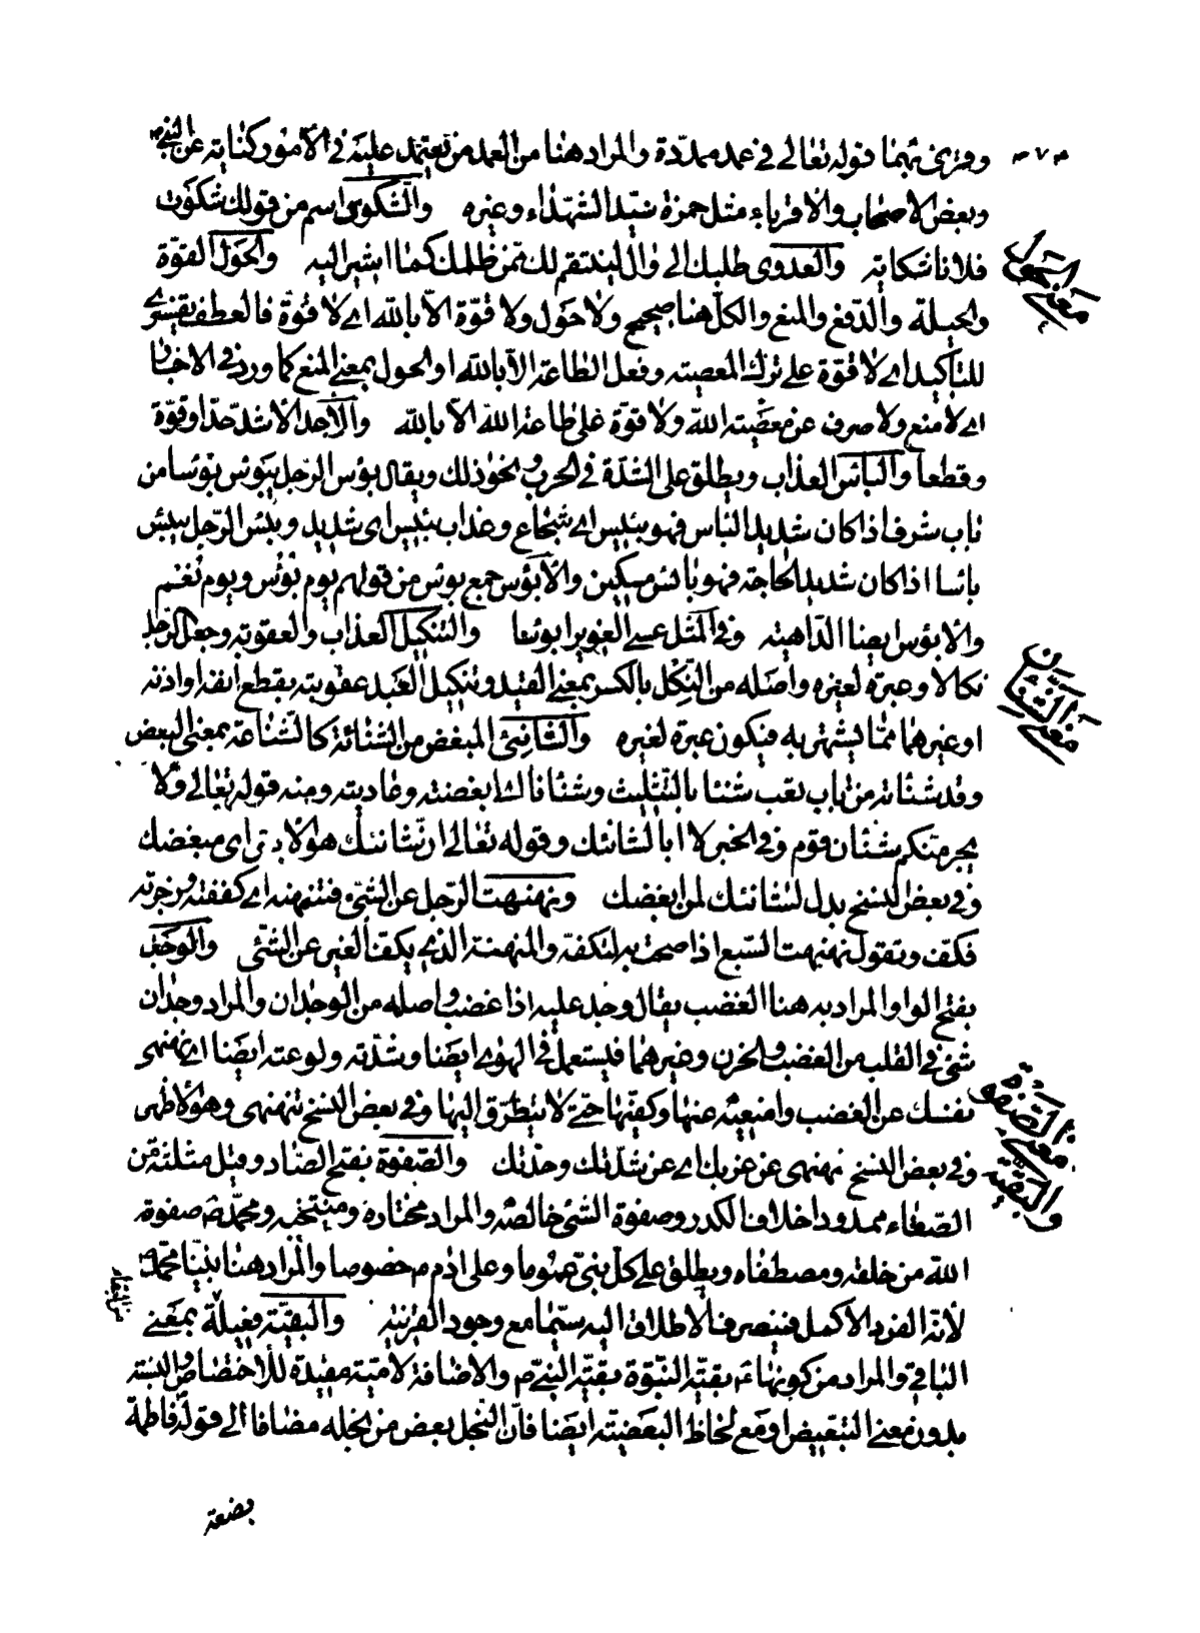 وقرئ بهما قوله تعالى في عمد ممدّدة والمراد هنا من العمد من يعتمد عليه في الأمور كناية عن النبيّ ص
٣٧٣
وبعض الاصحاب والاقرباء مثل حمزة سيّد الشهداء وغيره والشكوى اسم من قولك شكوت
فلانا شكاية والعدوى طلبك الى وال لينتقم لك ممّن ظلمك كما اشير اليه والحول القوّة
والحيلة والدّفع والمنع والكلّ هنا صحيح ولا حول ولا قوّة الّا باللّه اى لا قوّة فالعطف تفسيرى
للتأكيد اى لا قوّة على ترك المعصية وفعل الطاعة الّا باللّه او الحول بمعنى المنع كما ورد فى الاخبار
اى لا منع ولا صرف عن معصية اللّه ولا قوّة على طاعة اللّه الّا باللّه والأحدّ الاشدّ حدّا وقوّة
وقطعا والبأس العذاب ويطلق على الشدّة فى الحرب ونحو ذلك ويقال بؤس الرّجل يبؤس بؤسا من
باب شرف اذا كان شديد البأس فهو بئيس اى شجاع وعذاب بئيس اى شديد وبئس الرّجل يبئس
بأسا اذا كان شديد الحاجة فهو بائس مسكين والأبؤس جمع بوس من قولهم يوم بؤس ويوم نعم
والابؤس ايضا الدّاهية وفى المثل عسى الغوير ابؤسا والتنكيل العذاب والعقوبة وجعل الرّجل
نكالا وعبرة لغيره واصله من النّكل بالكسر بمعنى القيد وتنكيل العبد عقوبته بقطع أنفه او اذنه
او غيرهما ممّا يشتهر به فيكون عبرة لغيره والشّانئ المبغض من الشنائة كالشّناعة بمعنى البغض
وقد شنئته من باب تعب شنئا بالتّثليث وشنئانا اذا بغضته وعاديته ومنه قوله تعالى ولا
يجرمنّكم شنئان قوم وفى الخبر لا ابا لشانئك وقوله تعالى انّ شانئك هو الابتر اى مبغضك
وفى بعض النسخ بدل لشانئك لمن ابغضك ونهنهت الرّجل عن الشئ فتنهنه اى كففته وزجرته
فكفّ وتقول نهنهت السّبع اذا صحت به لتكفّه والمنهنه الذى يكفّ الغير عن الشئ والوجد
بفتح الواو المراد به هنا الغضب يقال وجد عليه اذا غضب واصله من الوجدان والمراد وجدان
شئ فى القلب من الغضب والحزن وغيرهما فيستعمل فى الهوى ايضا وشدّته ولوعته ايضا اى نهنهى
نفسك عن الغضب وامنعيه عنها وكفّيها حتى لا يتطرّق اليها وفى بعض النسخ تنهنهى وهو الاظهر
وفى بعض النسخ نهنهى عن غربك اى عن شدّتك وحدّتك والصّفوة بفتح الصّاد وقيل مثلثة من
الصّفاء ممدود اخلاف الكدر وصفوة الشئ خالصه والمراد مختاره ومنتخبه ومحمّد ص صفوة
اللّه من خلقه ومصطفاه ويطلق على كلّ نبىّ عموما وعلى ادم ع خصوصا والمراد هنا نبيّنا محمّد ص
لأنّه الفرد الاكمل فينصرف الاطلاق اليه سيّما مع وجود القرينة والبقيّة فعيلة بمعنى
الباقى والمراد من كونها ع بقيّة النّبوّة بقيّة النبىّ ص والاضافة لاميّة مفيدة للاختصاص والنسبة
بدون معنى التبعيض او مع لحاظ البعضيّة ايضا فانّ النجل بعض من نجله مضافا الى قوله فاطمة
بضعة
معنى الحول
معنى التّنكيل
معنى الصّفوة
والبقيّة